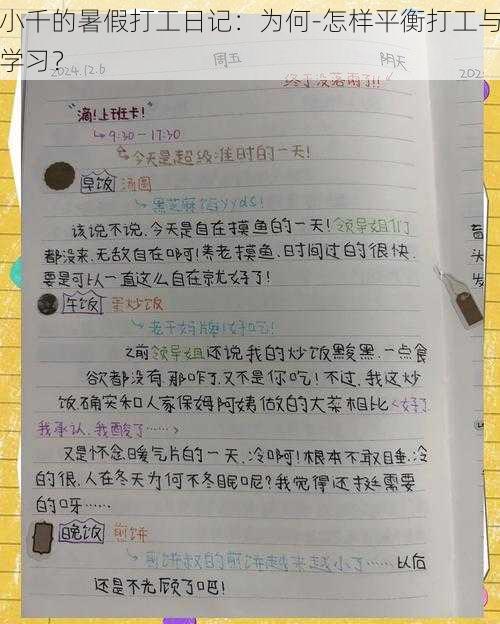 小千的暑假打工日记：为何-怎样平衡打工与
学习？
2024.12.6 周五 阴天
202
终于没落雨了!!
"滴!上班卡!
9:30-17:30
今天是超级准时的一天!
早饭 汤圆
黑芝麻馅yyds!
该说不说,今天是自在摸鱼的一天!领导姐们
都没来.无敌自在啊!养老摸鱼.日时间过的很快.
要是可以一直这么自在就好了!
午饭 蛋炒饭
老干妈牌!好吃!
之前领导姐还说我的炒饭黑黑.一点食
欲都没有.那咋了.又不是你吃!不过.我这炒
饭确实和人家保姆阿姨做的大菜相比
我承认.我酸了……
又是怀念暖气片的一天.冷啊!根本不敢自垂.冷
的很.人在冬天为何不冬眠呢?我觉得还挺需要
的呀……
晚饭 煎饼
煎饼叔的煎饼越来越小了……以后
还是不光顾了吧!